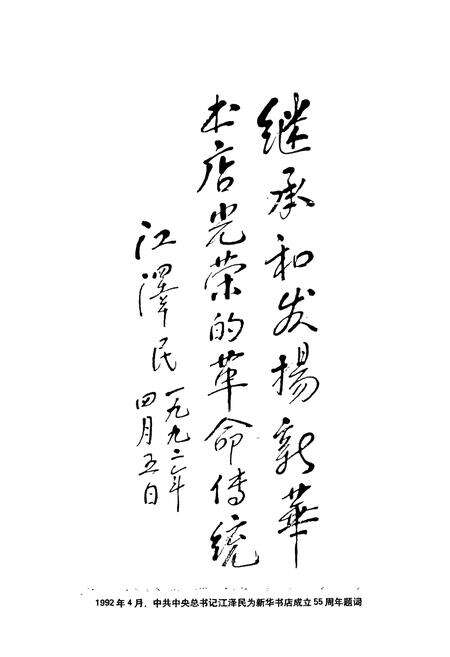 继承和发扬新華
书店光荣的革命传统
江澤民
一九九二年
四月五日
1992年4月，中共中央总书记江泽民为新华书店成立55周年题词